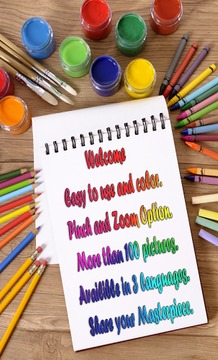 Welcome
Easy to use and color.
Pinch and Zoom Option.
More than 100 pictures.
Availible in 3 Languages.
Share your Masterpiece.